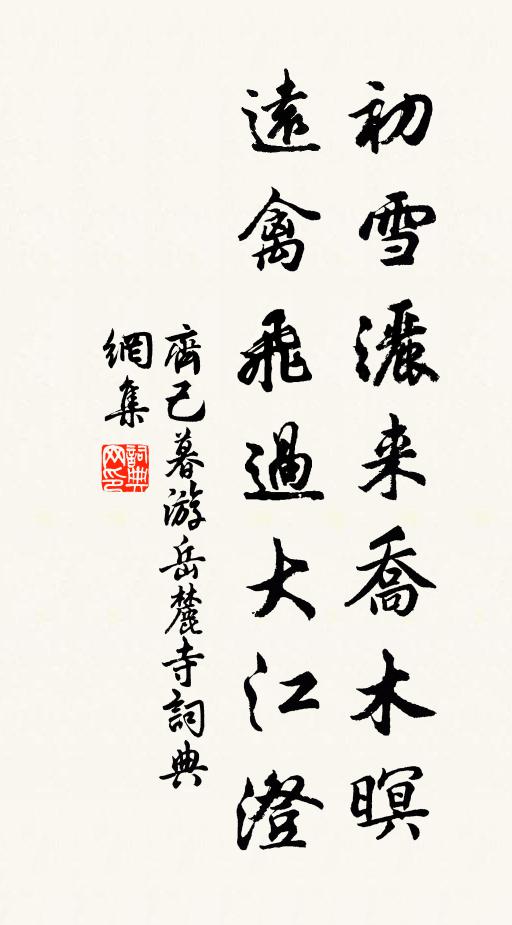 初雪灑来喬木暝
遠禽飛過大江澄
齊己暮游岳麓寺詞典
網集
詞典
网印